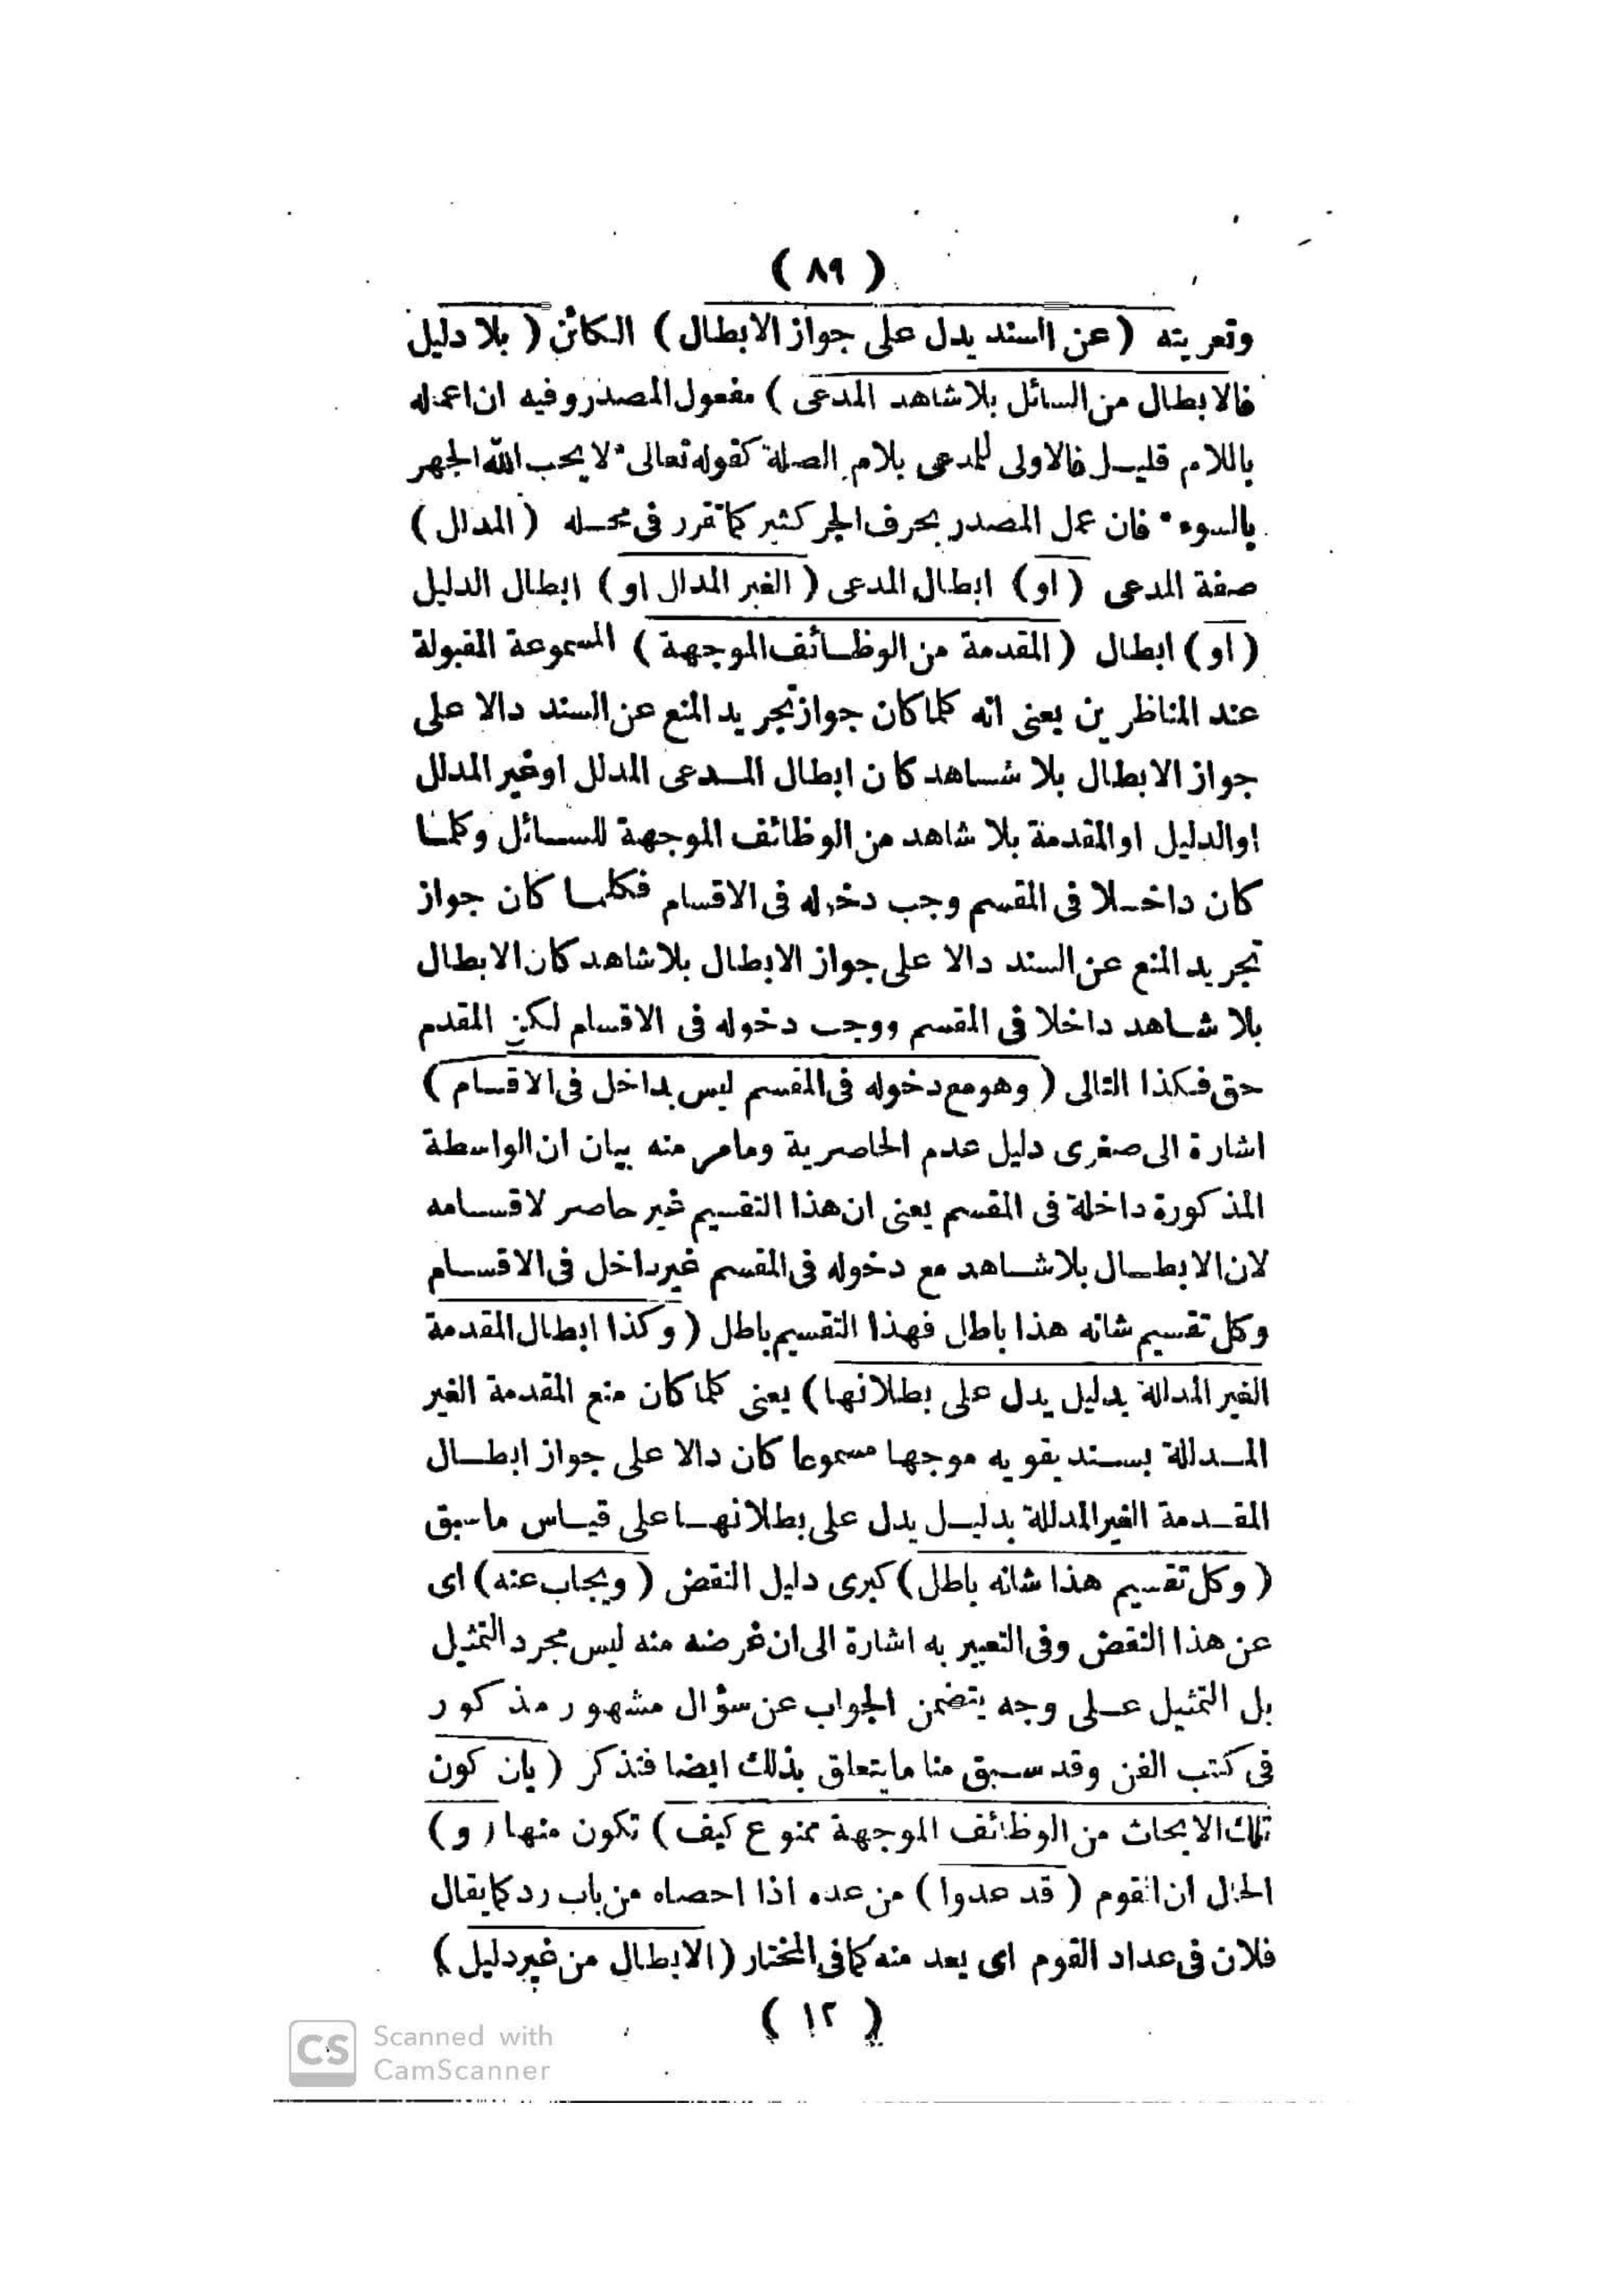 ( ٨٩ )
وتعريته ( عن السند يدل على جواز الابطال ) الكائن ( بلا دليل
فالابطال من السائل بلا شاهد المدعى ) مفعول المصدر وفيه ان اعماله
باللام قليل فالاولى للمدعى بلام الصلة كقوله تعالى * لا يحب الله الجهر
بالسوء * فان عمل المصدر بحرف الجر كثير كما تقرر فى محله ( المدلل )
صفة المدعى ( او ) ابطال المدعى ( الغير المدلل او ) ابطال الدليل
( او ) ابطال ( المقدمة من الوظائف الموجهة ) المسموعة المقبولة
عند المناظرين يعنى انه كلما كان جواز تجريد المنع عن السند دالا على
جواز الابطال بلا شاهد كان ابطال المدعى المدلل او غير المدلل
او الدليل او المقدمة بلا شاهد من الوظائف الموجهة للسائل وكلما
كان داخلا فى المقسم وجب دخوله فى الاقسام فكلما كان جواز
تجريد المنع عن السند دالا على جواز الابطال بلا شاهد كان الابطال
بلا شاهد داخلا فى المقسم ووجب دخوله فى الاقسام لكن المقدم
حق فكذا التالى ( وهو مع دخوله فى المقسم ليس بداخل فى الاقسام )
اشارة الى صغرى دليل عدم الحاصرية ومامر منه بيان ان الواسطة
المذكورة داخلة فى المقسم يعنى ان هذا التقسيم غير حاصر لاقسامه
لان الابطال بلا شاهد مع دخوله فى المقسم غير داخل فى الاقسام
وكل تقسيم شانه هذا باطل فهذا التقسيم باطل ( وكذا ابطال المقدمة
الغير المدللة بدليل يدل على بطلانها ) يعنى كلما كان منع المقدمة الغير
المدللة بسند يقويه موجها مسموعا كان دالا على جواز ابطال
المقدمة الغير المدللة بدليل يدل على بطلانها على قياس ماسبق
( وكل تقسيم هذا شانه باطل ) كبرى دليل النقض ( ويجاب عنه ) اى
عن هذا النقض وفى التعبير به اشارة الى ان غرضه منه ليس مجرد التمثيل
بل التمثيل على وجه يتضمن الجواب عن سؤال مشهور مذكور
فى كتب الفن وقد سبق منا ما يتعلق بذلك ايضا فتذكر ( بان كون
تلك الابحاث من الوظائف الموجهة ممنوع كيف ) تكون منها ( و )
الحال ان القوم ( قد عدوا ) من عده اذا احصاه من باب رد كما يقال
فلان فى عداد القوم اى يعد منه كما فى المختار ( الابطال من غير دليل )
( ١٢ )
CS Scanned with
CamScanner